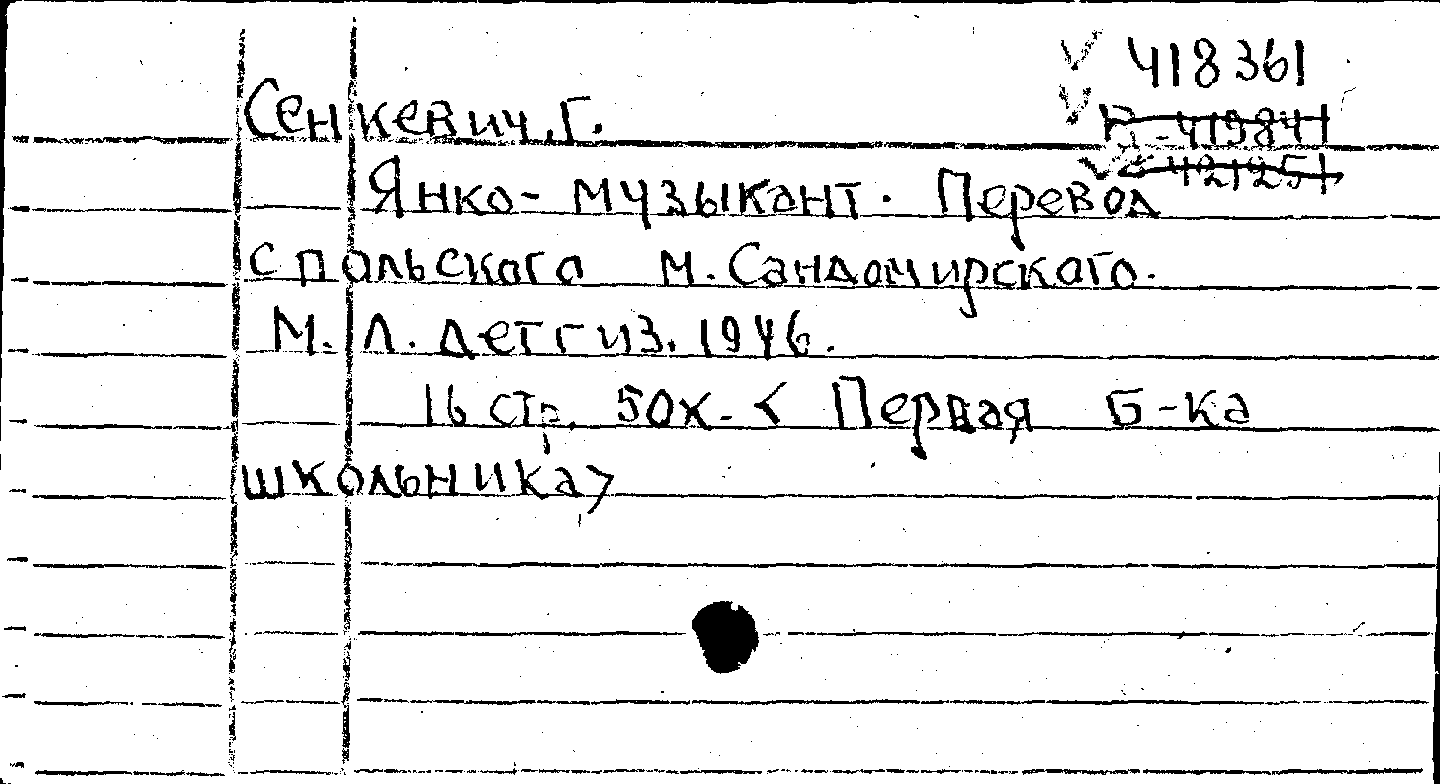 418361
Сенкевич, Г.
419841
421251
Янко-музыкант. Перевод
с польского М. Сандомирского.
М. Л. Детгиз. 1946.
16 стр. 50к. < Первая б-ка
школьника>